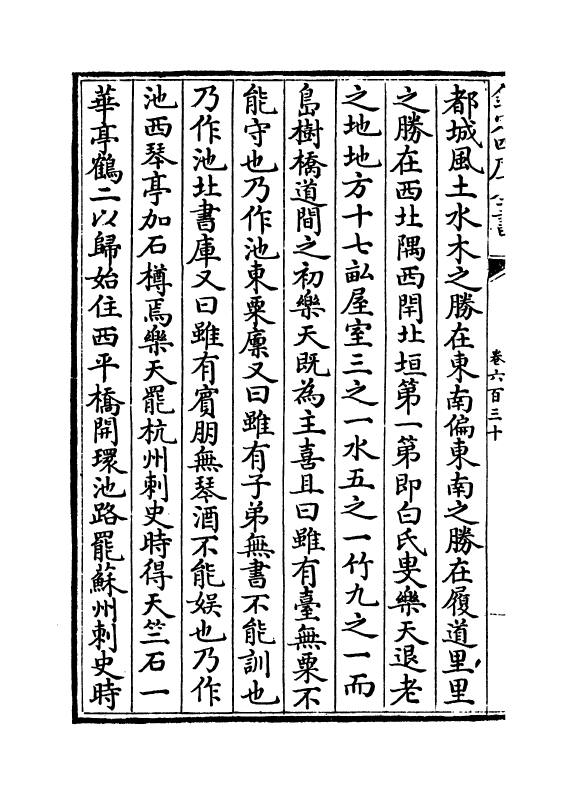 欽定四庫全書
卷六百三十
都城風土水木之勝在東南偏東南之勝在履道里里
之勝在西北隅西閈北垣第一第即白氏叟樂天退老
之地地方十七畝屋室三之一水五之一竹九之一而
島樹橋道間之初樂天既為主喜且曰雖有臺無粟不
能守也乃作池東粟廩又曰雖有子弟無書不能訓也
乃作池北書庫又曰雖有賓朋無琴酒不能娱也乃作
池西琴亭加石樽焉樂天罷杭州刺史時得天竺石一
華亭鶴二以歸始住西平橋開環池路罷蘇州刺史時